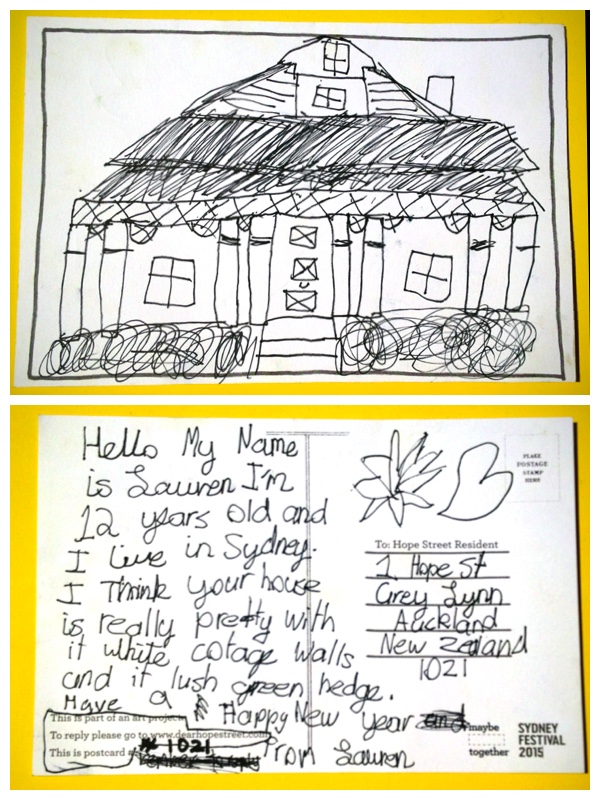 Hello My Name
is Lauren I'm
12 years old and
I live in Sydney.
I Think your house
is really pretty with
it white cotage walls
and it lush green hedge.
Have a Happy New year
From Lauren
This is part of an art project
To reply please go to www.dearhopestreet.com
This is postcard #
1021
PLACE
POSTAGE
STAMP
HERE
To: Hope Street Resident
1 Hope St
Grey Lynn
Auckland
New Zealand
1021
maybe
together
SYDNEY
FESTIVAL
2015